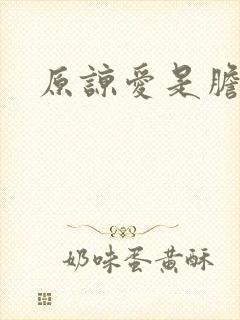 原諒愛是膽
奶味蛋黃酥